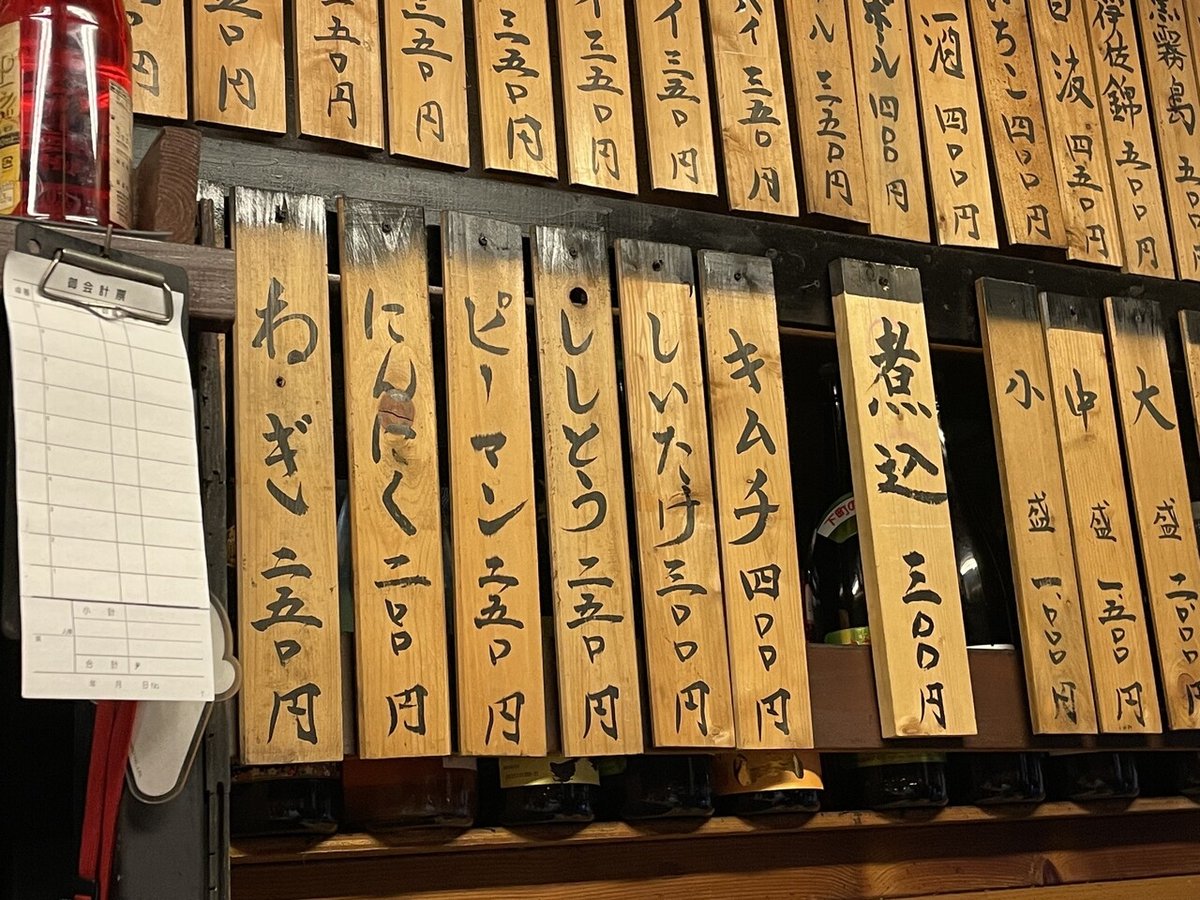 黒霧島 五〇〇
伊佐錦 五〇〇円
白波 四五〇円
いちこ 四〇〇円
酒 四〇〇円
ール 四〇〇円
ル 三五〇円
イ 三五〇円
イ 三五〇円
イ 三五〇円
三五〇円
三五〇円
五〇円
五〇円
円
大盛 二、〇〇〇円
中盛 一、五〇〇円
小盛 一、〇〇〇円
煮込 三〇〇円
キムチ 四〇〇円
しいたけ 三〇〇円
ししとう 二五〇円
ピーマン 二五〇円
にんにく 二〇〇円
ねぎ 二五〇円
御会計票
小計
合計
年 月 日 No